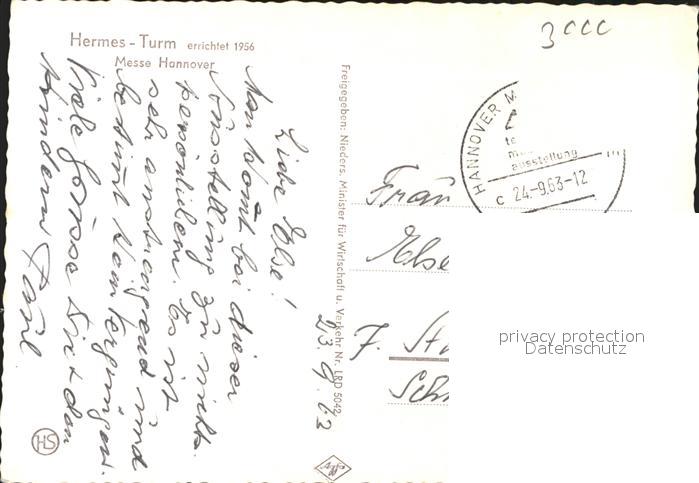 Hermes - Turm errichtet 1956
Messe Hannover
3ccc
HANNOVER M
te
m
ausstellung
c 24.-9.63-12
Freigegeben: Nieders. Minister für Wirtschaft u. Verkehr Nr. LRD 5042
23. 9. 63
Liebe Else!
Man kommt bei dieser
Ausstellung zu nichts
persönlichem. Es ist
sehr anstrengend und
bestimmt kein Vergnügen.
Viele Grüsse Dir + den
Kindern Paul
Frau
Else
7. St
Sch
privacy protection
Datenschutz
HS